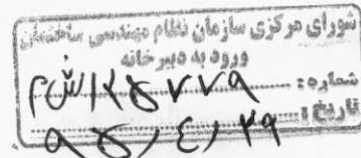 شورای مرکزی سازمان نظام مهندسی ساختمان
ورود به دبیرخانه
شماره: ۱۲۵۷۷۹ش م
تاریخ: ۹۵٫۴٫۲۹